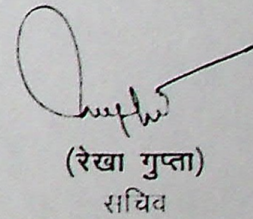 (रेखा गुप्ता)
सचिव